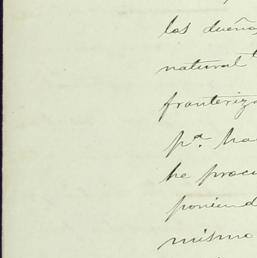 los dueño
natural t
fronteriz
pª. ha
he procu
poniend
mismo